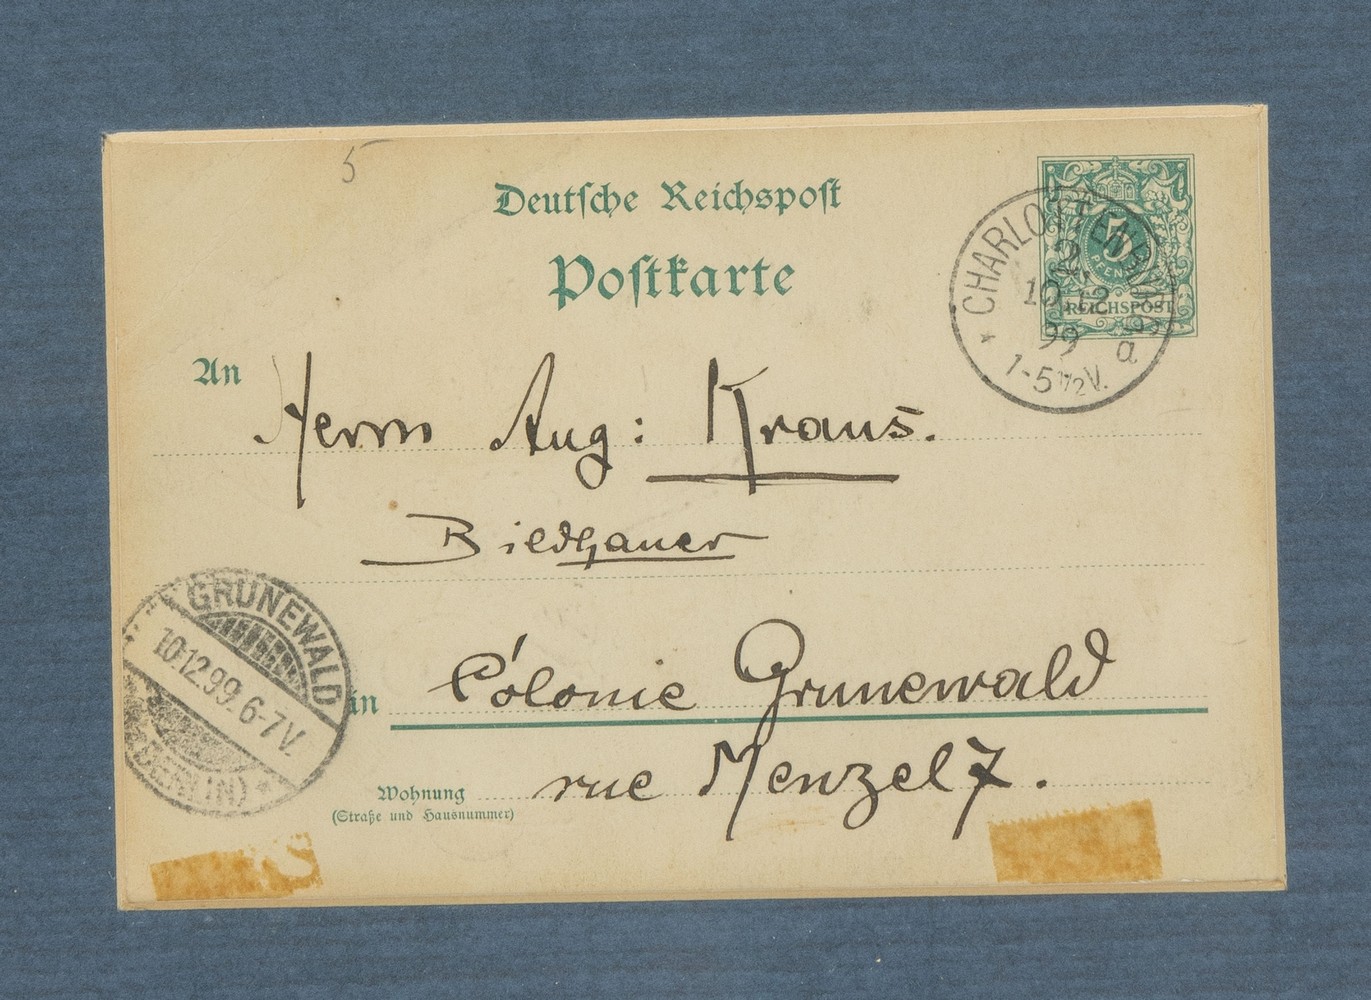 5
Deutsche Reichspost
Postkarte
5
PFENNIG
REICHSPOST
CHARLOTTENBURG
2.
10.12
99
a
1-5 1/2 V.
An Herrn Aug: Kraus.
Biedhauer
GRUNEWALD
10.12.99.6-7V.
(BERLIN)
in Cólonie Grunewald
rue Menzel 7.
Wohnung
(Straße und Hausnummer)